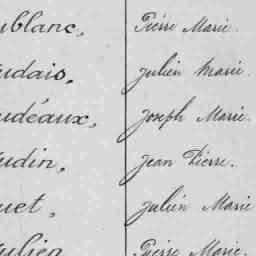 ublanc, Pierre Marie.
udais, Julien Marie.
udéaux, Joseph Marie.
udin, Jean Pierre.
uet, Julien Marie
ulien Pierre Marie.